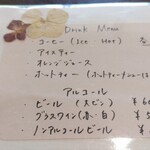 Drink Menu
・コーヒー (Ice ・ Hot)
・アイスティー
・オレンジジュース
・ホットティー (ホットティーメニュー
アルコール
・ビール (大ビン) ¥6
・グラスワイン (赤・白) ¥5
・ノンアルコールビール ¥